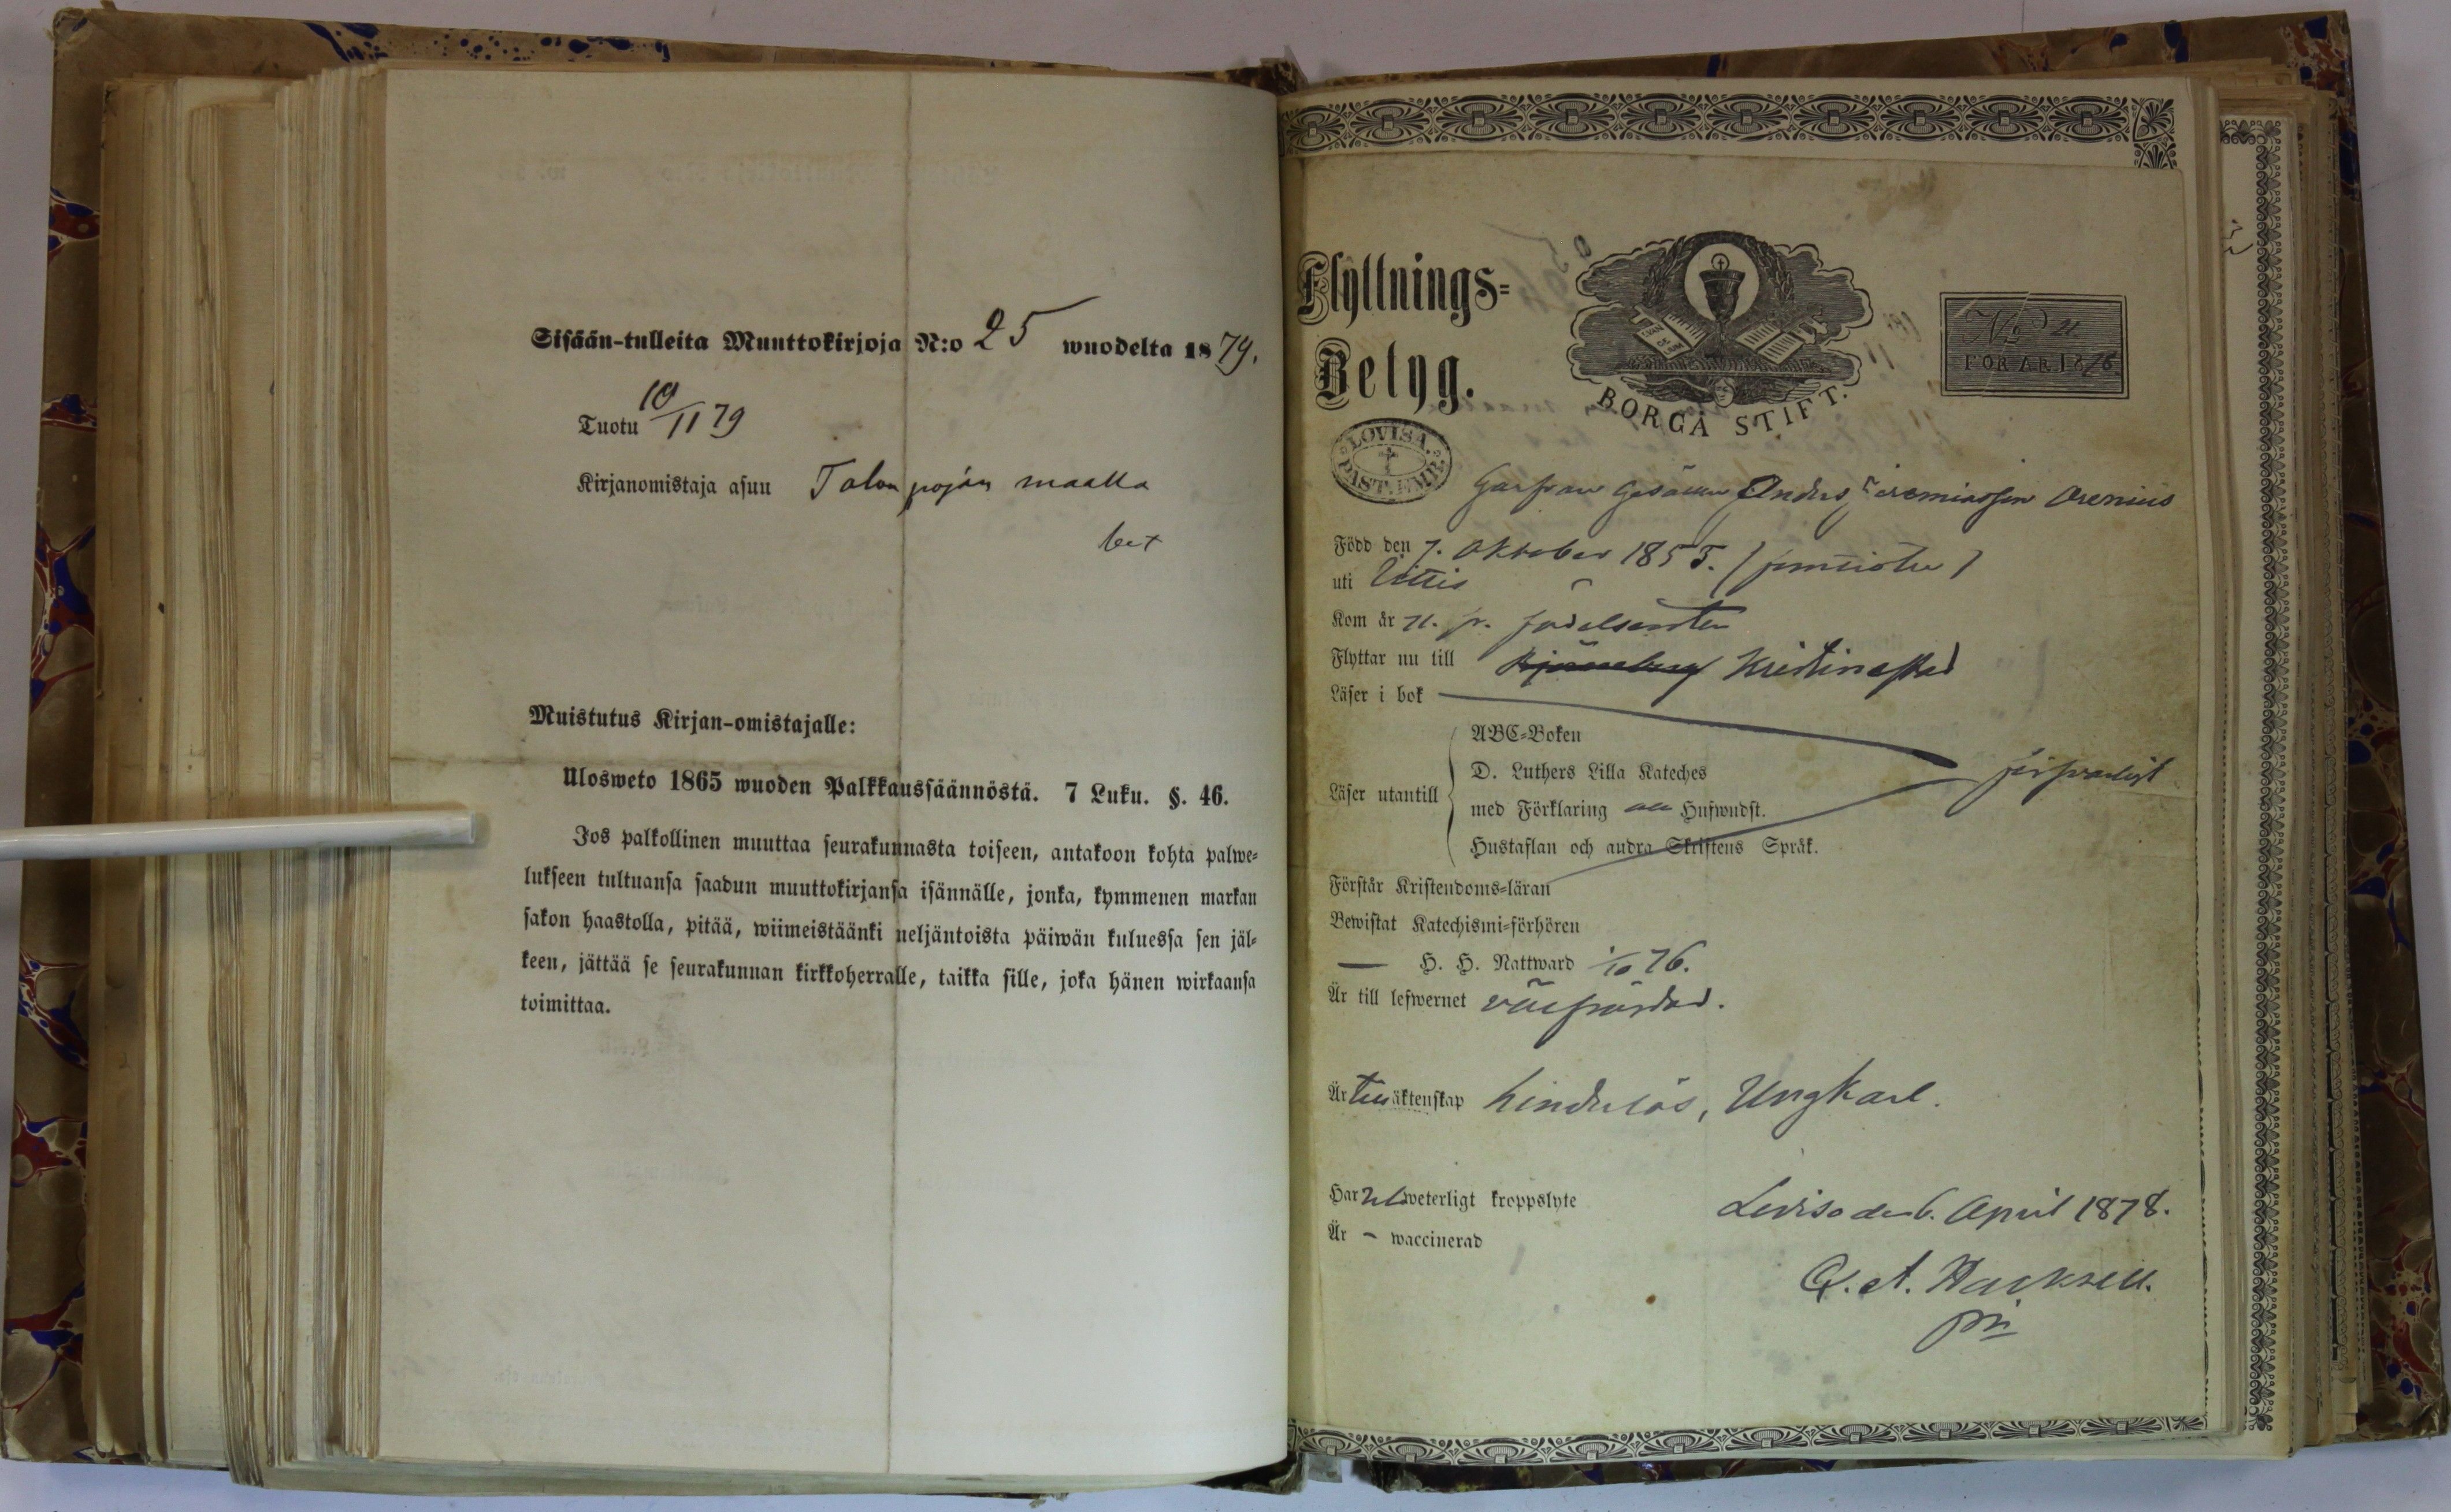 Sisään-tulleita Muuttokirjoja N:o 25 wuodelta 1879.
Tuotu 10/11 79
Kirjanomistaja asuu Talonpojan maalla
Muistutus Kirjan-omistajalle:
Ulosweto 1865 wuoden Palkkaussäännöstä. 7 Luku. §. 46.
Jos palkollinen muuttaa seurakunnasta toiseen, antakoon kohta palwe=
lukseen tultuansa saadun muuttokirjansa isännälle, jonka, kymmenen markan
sakon haastolla, pitää, wiimeistäänki neljäntoista päiwän kuluessa sen jäl=
keen, jättää se seurakunnan kirkkoherralle, taikka sille, joka hänen wirkaansa
toimittaa.
Flyttnings=
Betyg.
EVAN
GE
LIUM
BORGÅ STIFT.
No 21.
FÖR ÅR 1876.
LOVISA
PAST. EMB.
Garfvare Gesällen Anders Jeremiasson Arenius
Född den 7. Oktober 1855. (femtiofem)
uti Littis
Kom år 71. fr. födelseorten
Flyttar nu till Björneborg Kristinestad
Läser i bok
ABC=Boken
D. Luthers Lilla Kateches
Läser utantill
med Förklaring alla Hufwudst.
försvarligt
Hustaflan och andra Skriftens Språk.
Förstår Kristendoms=läran
Bewistat Katechismi=förhören
— H. H. Nattward 1/10 76.
Är till lefwernet välfrejdad.
Är till äktenskap hinderlös, Ungkarl.
Har wetterligt kroppslyte
Är – waccinerad
Lovisa den 6. April 1878.
Hacksell.